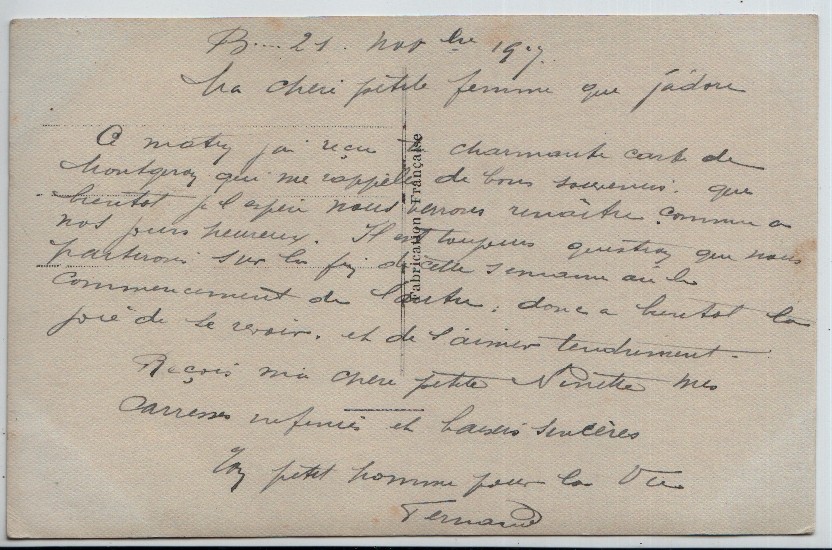 B... 21. Novbre 1917.
Ma cheri petite femme que j'adore
Ce matin j'ai reçu ta charmante carte de
Montgeron qui me rappelle de bons souvenirs. que
bientot je l'espère nous verrons renaître comme a
nos jours heureux. Il est toujours question que nous
partirons sur la fin de cette semaine ou le
commencement de l'autre; donc a bientot la
joie de te revoir. et de t'aimer tendrement.
Reçois ma chere petite Ninette mes
Carresses infinies et baisers sincères
Ton petit homme pour la Vie
Fernand
Fabrication Française